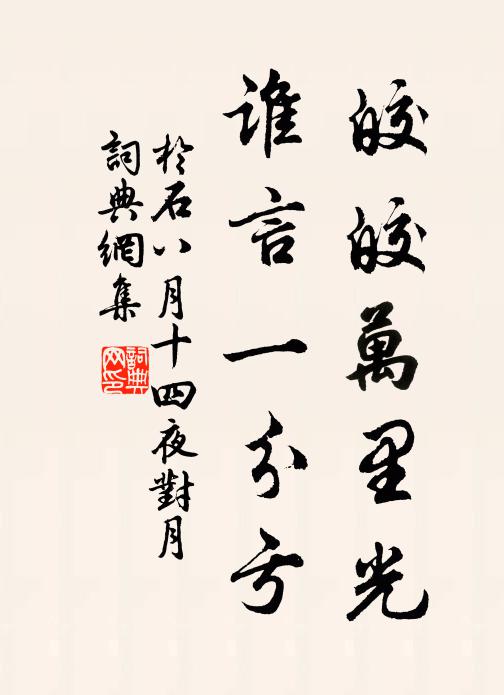 皎皎萬里光
谁言一分亏
於石八月十四夜對月
詞典網集
詞典
网印